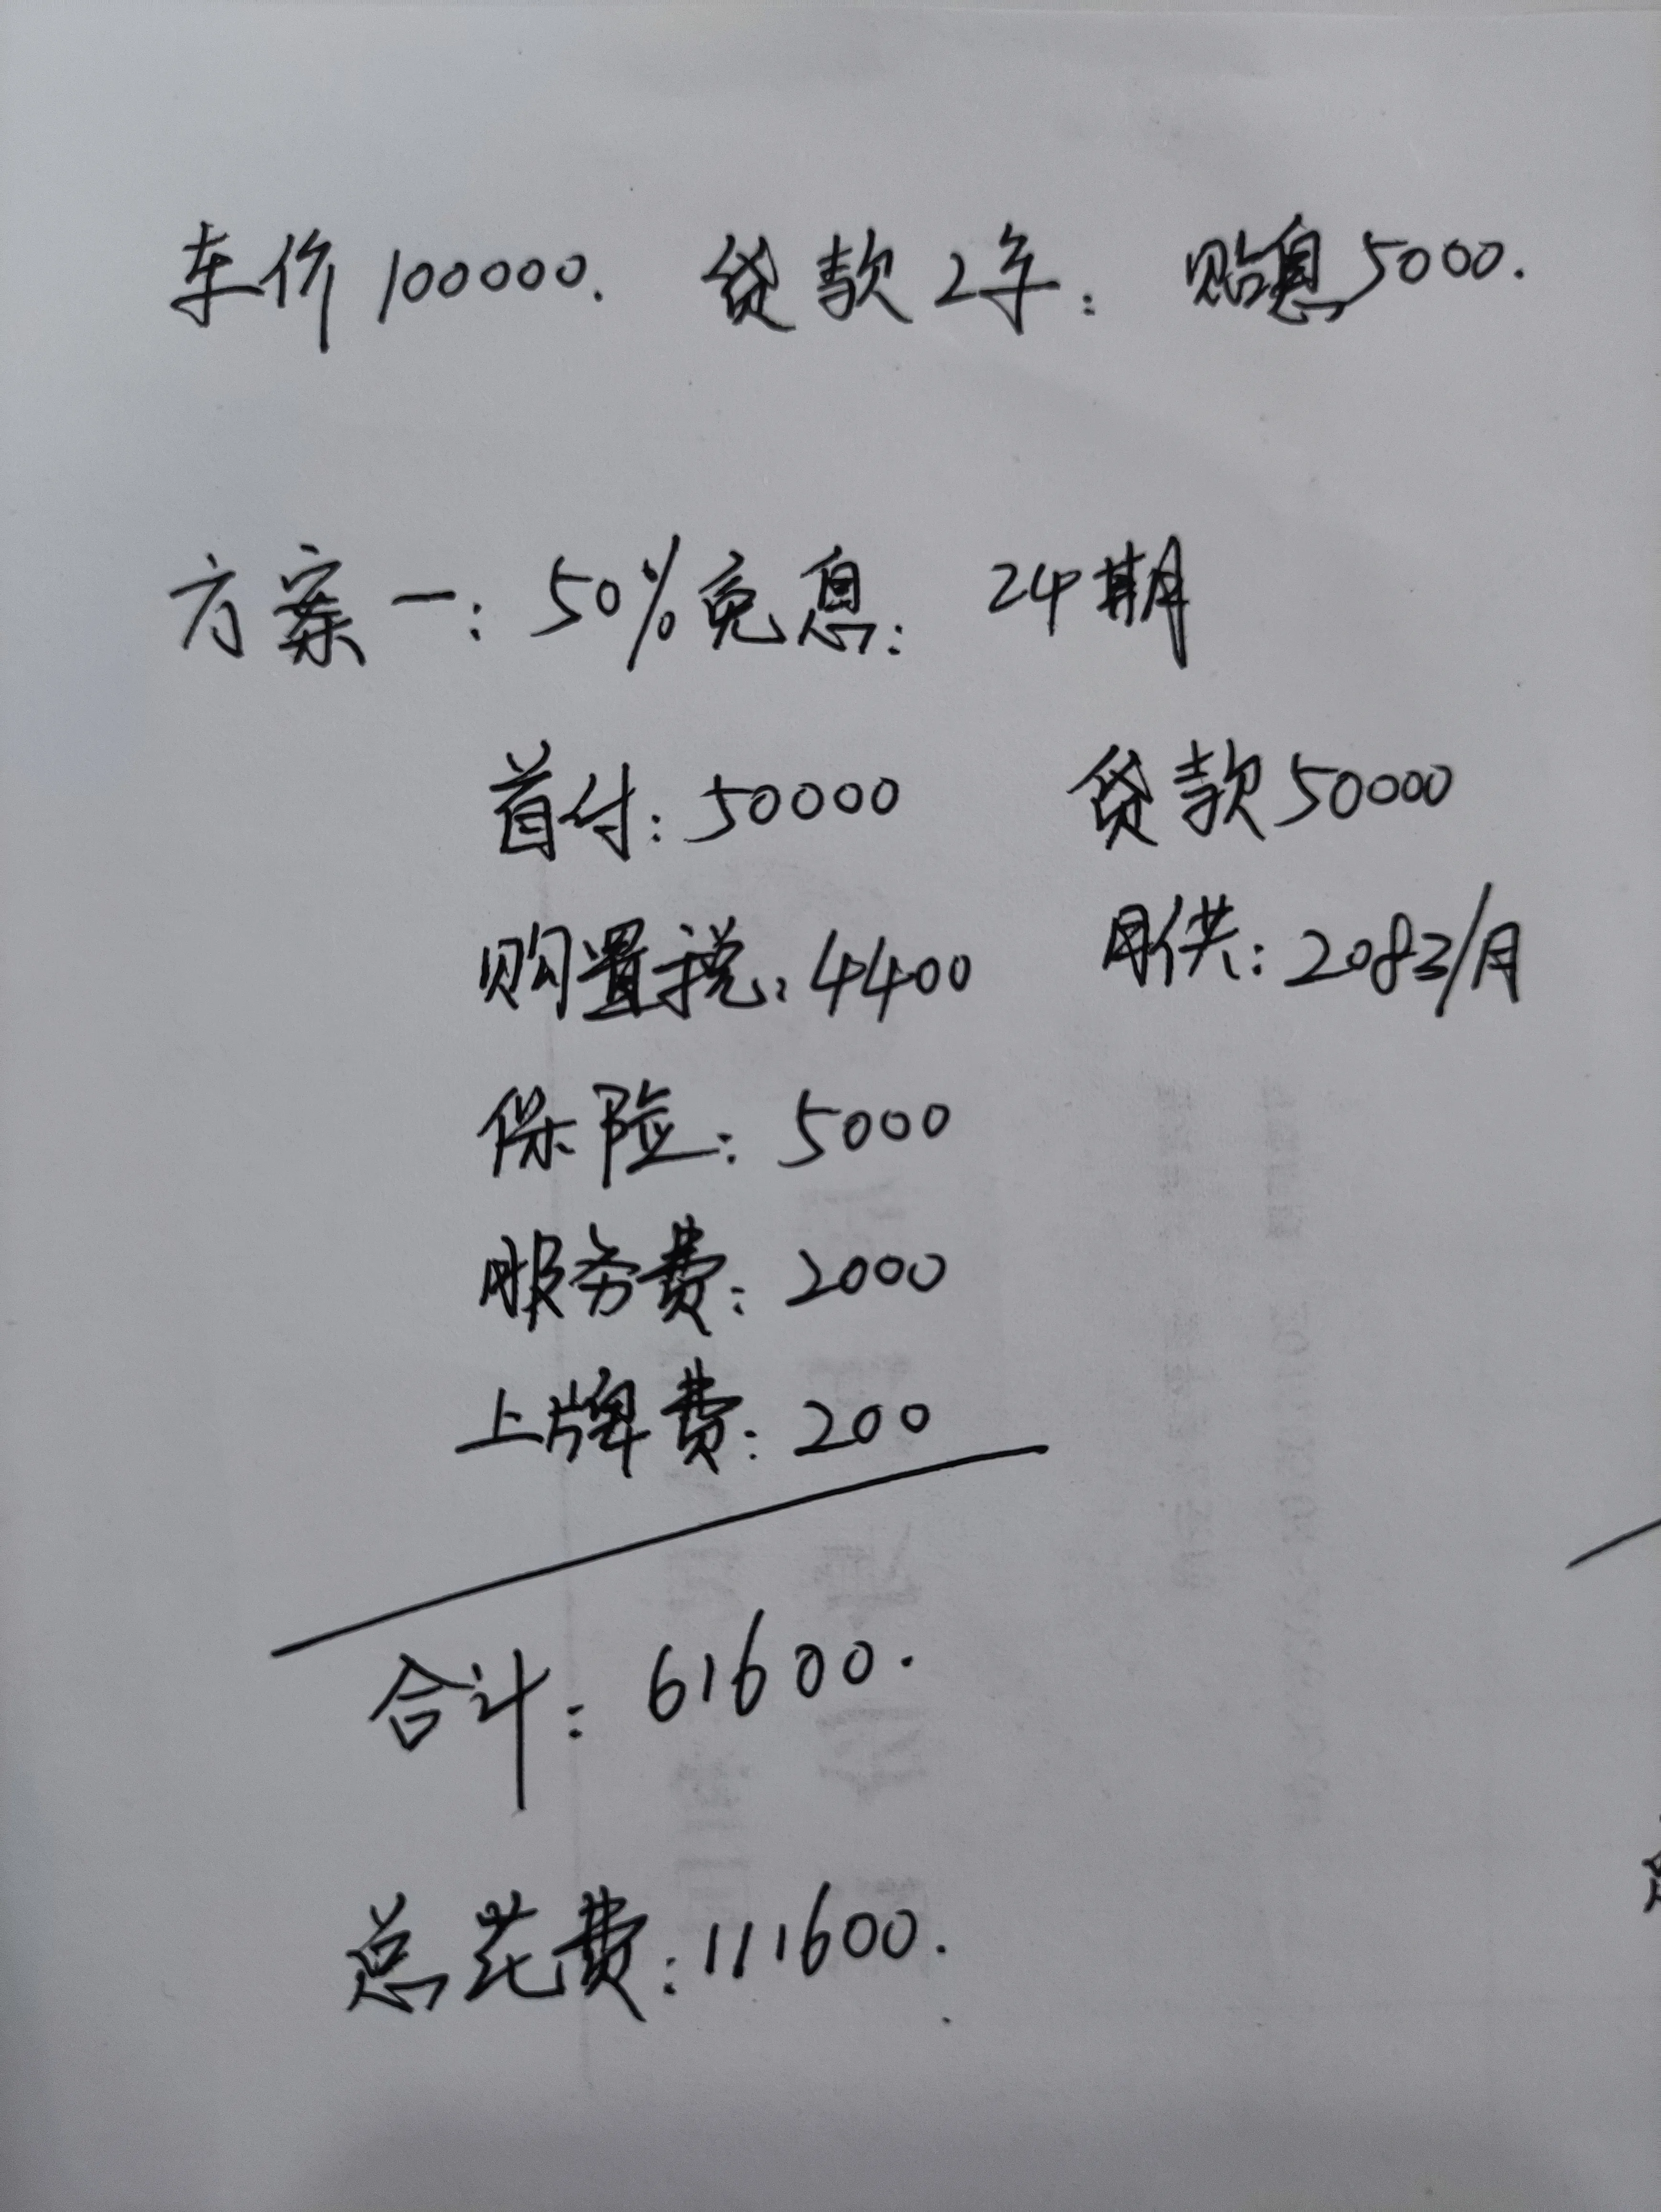 车价100000. 贷款2年: 贴息5000.
方案一: 50%免息: 24期
首付: 50000 贷款50000
购置税: 4400 月供: 2083/月
保险: 5000
服务费: 2000
上牌费: 200
合计: 61600.
总花费: 111600.